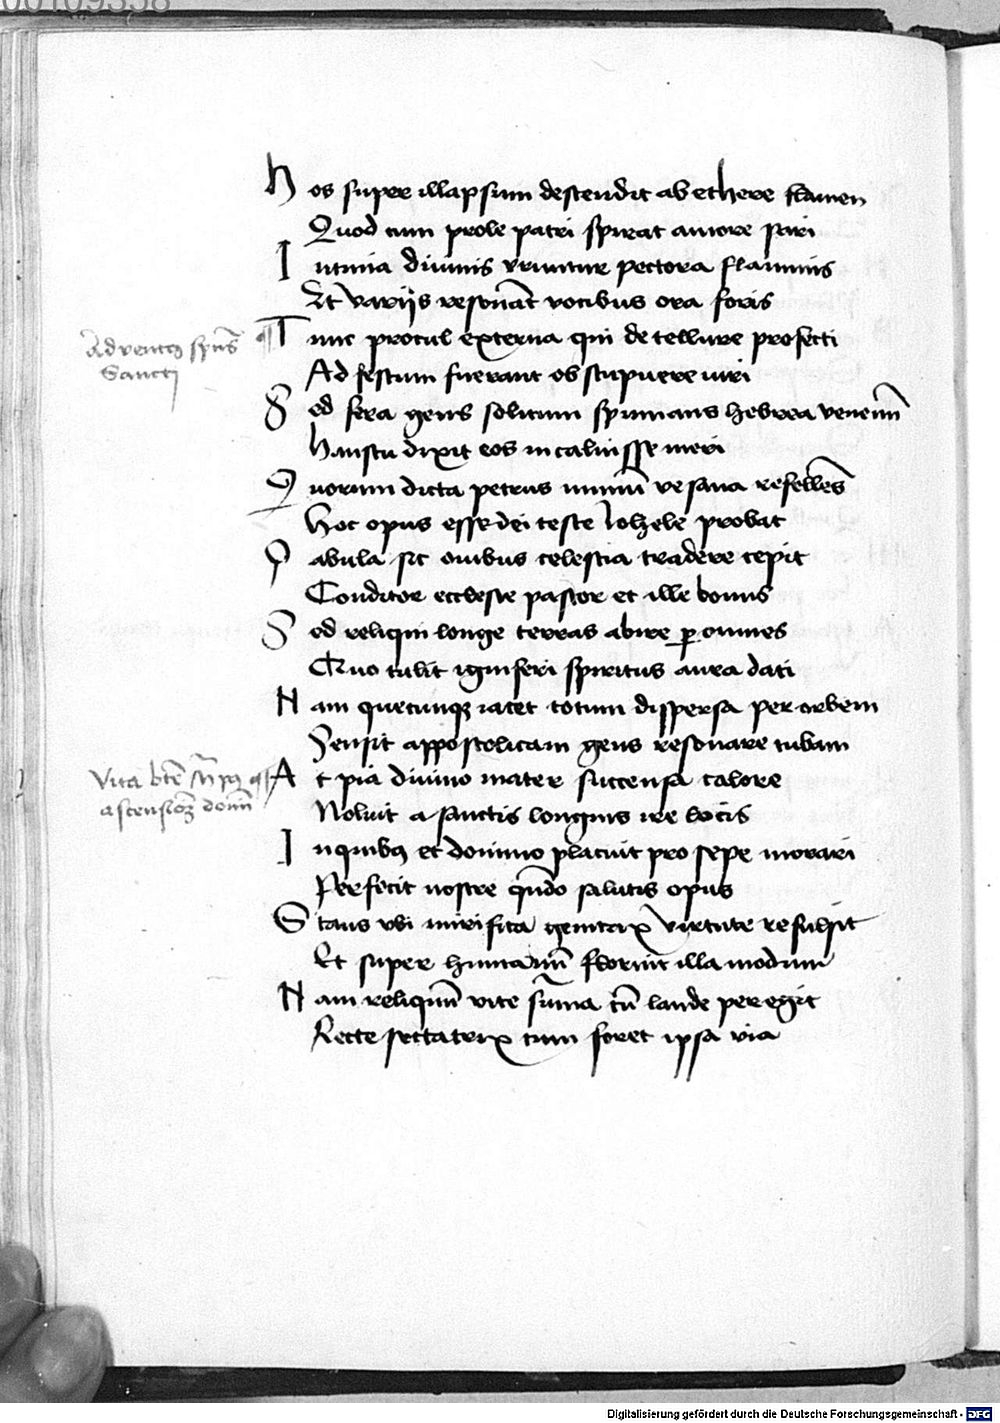 00109338
Hos super illapsum descendit ab ethere flamen
Quod cum prole patri spirat amore pari
Intima diuinis vruntur pectora flammis
At varijs resonāt vocibus ora foris
Adventꝰ spūs Sancti
¶ Tunc procul externa qui de tellure profecti
Ad festum fuerant obstupuere uiri
Sed fera gens solitum spumans hebrea venenū
Haustu dixit eos incaluisse meri
Quorum dicta petrus nimiū vesana refellēs
Hoc opus esse dei teste Iohele probat
Pabula sic ouibus celestia tradere cepit
Conditor ecclesie pastor et ille bonus
Sed reliqui longe terras abire ꝑ omnes
Quo tulit igniferi spiritus aura dati
Nam quecunqꝫ iacet totum dispersa per orbem
Sensit appostolicam gens resonare tubam
Vita btē
ascensioꝫ domī
¶ At pia diuino mater succensa calore
Noluit a sanctis longius ire locis
In quibꝰ et domino placuit pro sepe morari
Perfecit nostre quādo salutis opus
Stans vbi mirifica genitrix virtute refulsit
Et super humanū floruit illa modum
Nam reliquū vite sūma cū laude peregit
Recte sectatrix cum foret ipsa via
Digitalisierung gefördert durch die Deutsche Forschungsgemeinschaft - DFG